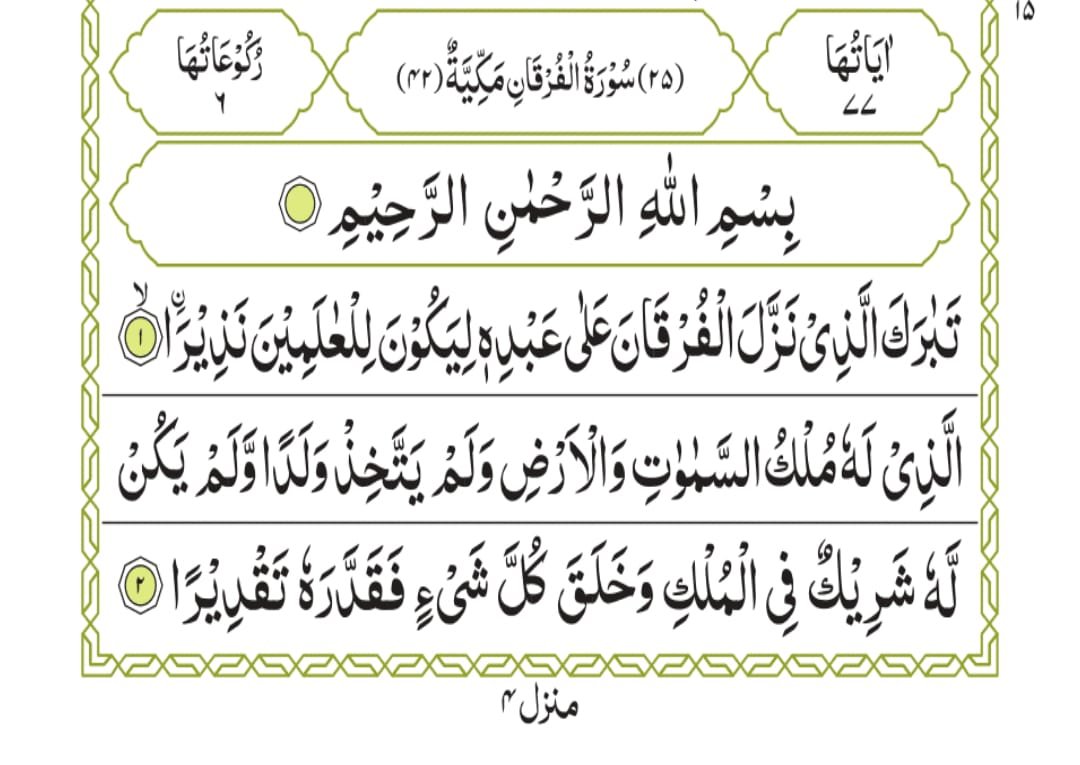 ۱۵
اٰيَاتُهَا
۷۷
(۲۵) سُوْرَةُ الْفُرْقَانِ مَكِّيَّةٌ (۴۲)
رُكُوْعَاتُهَا
۶
بِسْمِ اللّٰهِ الرَّحْمٰنِ الرَّحِيْمِ
تَبٰرَكَ الَّذِىْ نَزَّلَ الْفُرْقَانَ عَلٰى عَبْدِهٖ لِيَكُوْنَ لِلْعٰلَمِيْنَ نَذِيْرَاۨ ۙ ۱
الَّذِىْ لَهٗ مُلْكُ السَّمٰوٰتِ وَالْاَرْضِ وَلَمْ يَتَّخِذْ وَلَدًا وَّلَمْ يَكُنْ
لَّهٗ شَرِيْكٌ فِى الْمُلْكِ وَخَلَقَ كُلَّ شَىْءٍ فَقَدَّرَهٗ تَقْدِيْرًا ۲
منزل ۴